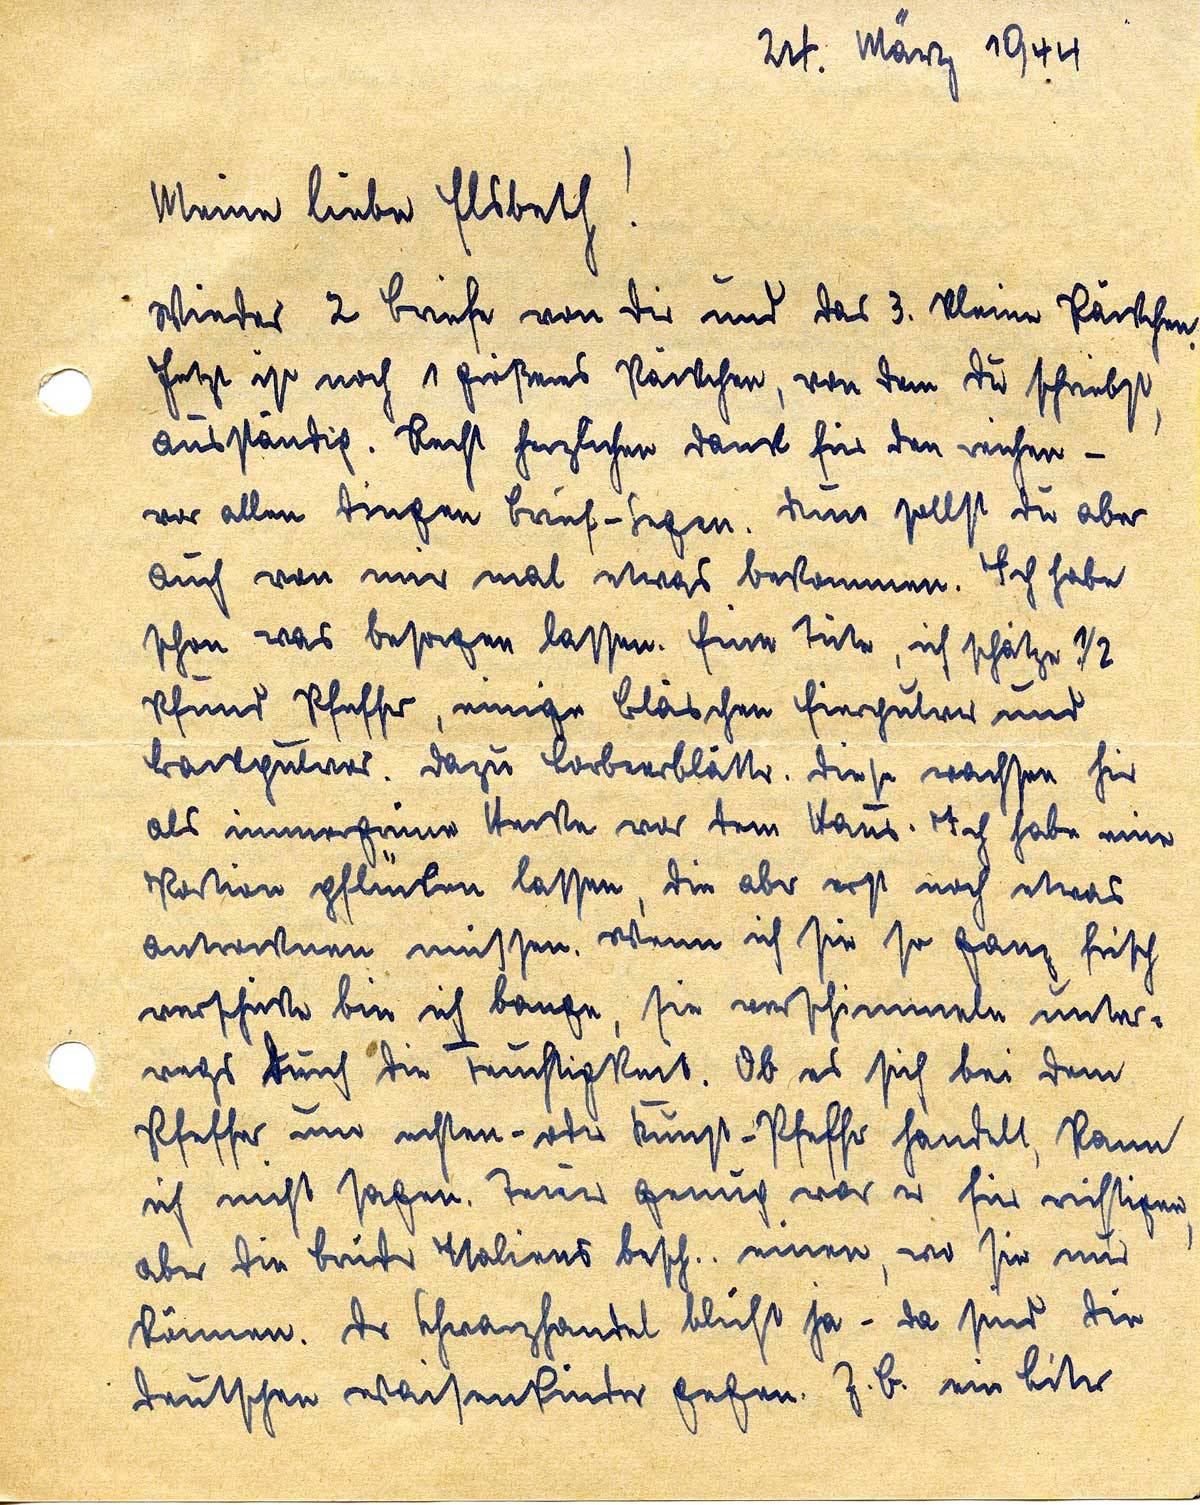 24. März 1944
Meine liebe Elsbeth!
Wieder 2 Briefe von Dir und das 3. kleine Päckchen.
Jetzt ist noch 1 größeres Päckchen, von dem Du schriebst,
ausständig. Recht herzlichen Dank für den reichen –
vor allen Dingen Brief-Segen. Nun sollst Du aber
auch von mir mal etwas bekommen. Ich habe
schon was besorgen lassen. Eine Tüte, ich schätze 1/2
Pfund Pfeffer, einige Gläschen Eierpulver und
Backpulver. Dazu Lorbeerblätter. Diese wachsen hier
als immergrüne Hecke vor dem Haus. Ich habe eine
Portion pflücken lassen, die aber erst noch etwas
antrocknen müssen. Wenn ich sie so ganz frisch
verschicke bin ich bange, sie verschimmeln unter-
wegs durch die Feuchtigkeit. Ob es sich bei dem
Pfeffer um echten- oder Kunst-Pfeffer handelt, kann
ich nicht sagen. Teuer genug war er für richtigen,
aber die Brüder Italiens besch.. einen, wo sie nur
können. Der Schwarzhandel blüht ja – da sind die
deutschen Waisenkinder gegen. Z.B. ein Liter